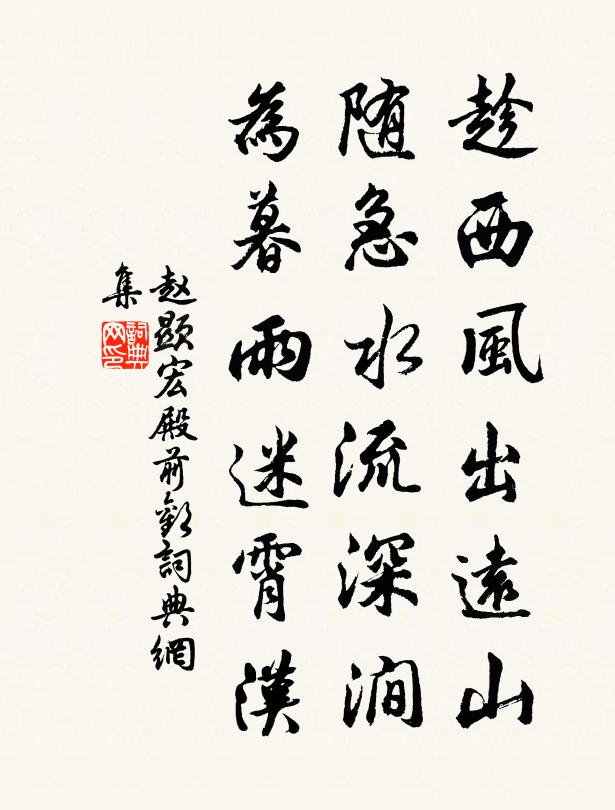 趁西風出遠山
随急水流深澗
為暮雨迷霄漢
赵顯宏殿前歡詞典網
集
詞典網印